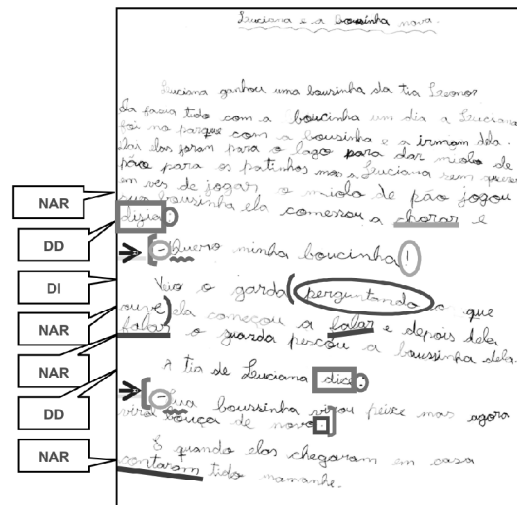 Luciana e a bousinha nova.
Luciana ganhou uma bousinha da tia Leonor
Ela fasia tido com a boucinha um dia a Luciana
foi no parque com a bousinha e a irmiam dela.
elas foram para o lago para dar miolo de
pão para os patinhos mas a Luciana sem querer
em ves de jogar o miolo de pão jogou
NAR
sua bousinha ela comesou a chorar e
disia:
DD
- Quero minha boucinha!
DI
Veio o garda perguntando o que
NAR
ouve ela começou a falar e depois dela
NAR
falar o guarda pescou a boussinha dela.
A tia de Luciana dice:
DD
- Sua boussinha virou peixe mas agora
virou bouça de novo.
NAR
E quando elas chegaram em casa
contaram tido mamanhe.